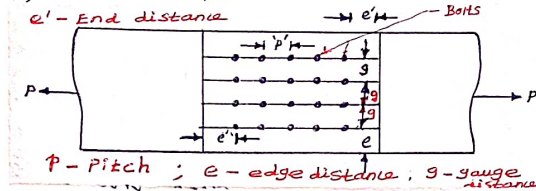 e' - End distance
e'
Bolts
'P'
g
P
g
g
P
e'
e
P - Pitch ; e - edge distance ; g - gauge
distance